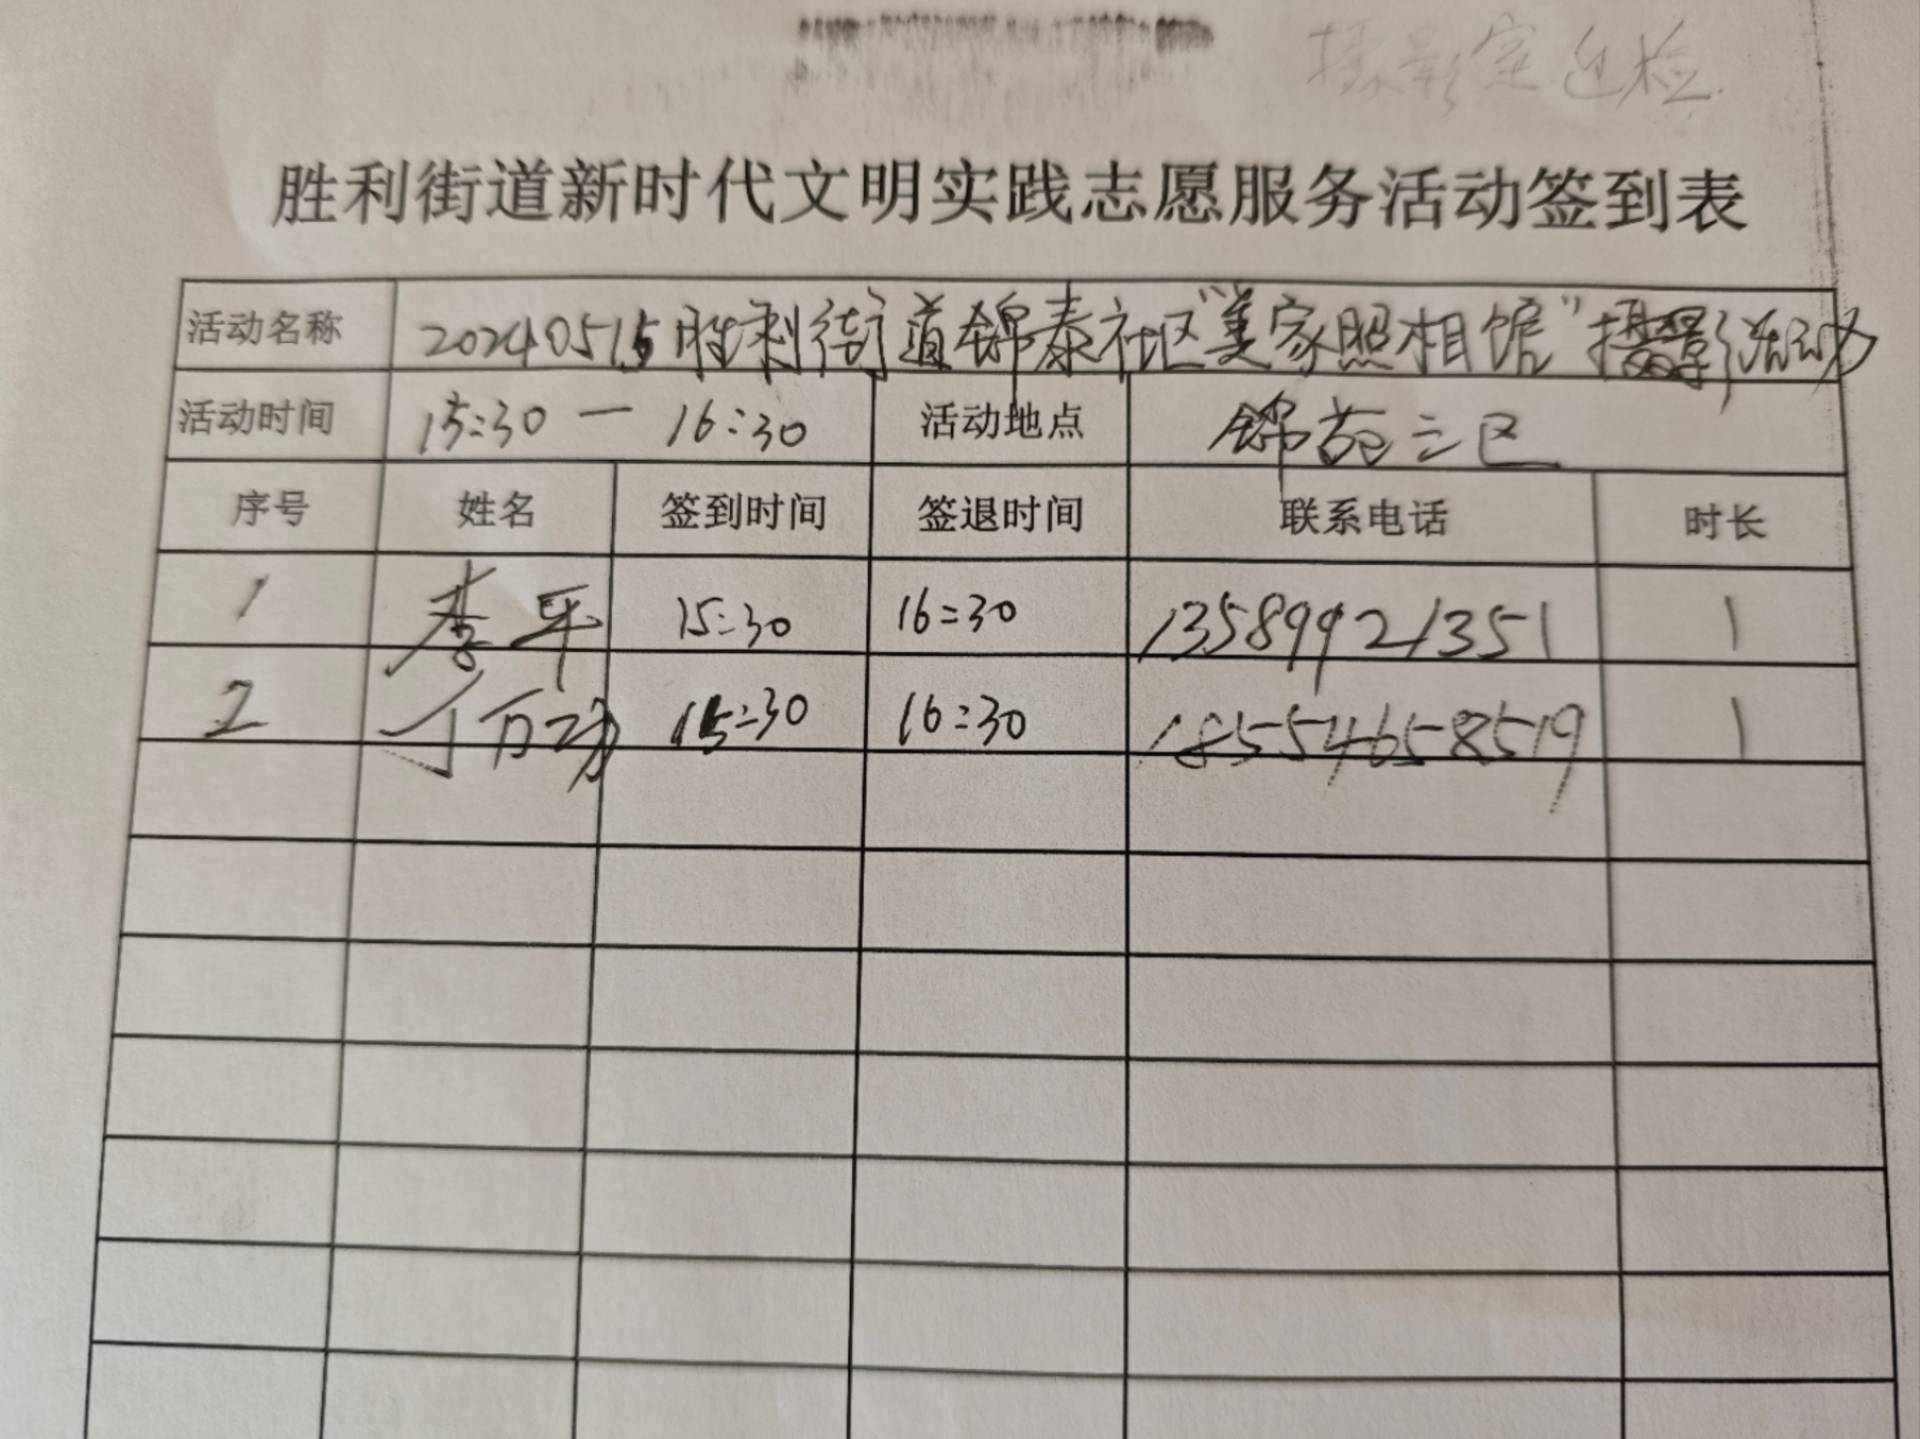 摄影室巡检
胜利街道新时代文明实践志愿服务活动签到表
活动名称 20240515胜利街道锦泰社区"美家照相馆"摄影活动
活动时间 15:30 — 16:30 活动地点 锦苑三区
序号 姓名 签到时间 签退时间 联系电话 时长
1 李平 15:30 16:30 13589921351 1
2 丁百功 15:30 16:30 18554658519 1